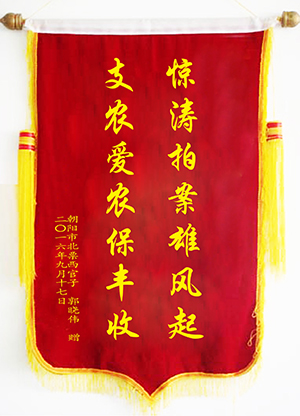 惊涛拍案雄风起
支农爱农保丰收
朝阳市北票西官子 郭晓伟 赠
二〇一六年九月十七日